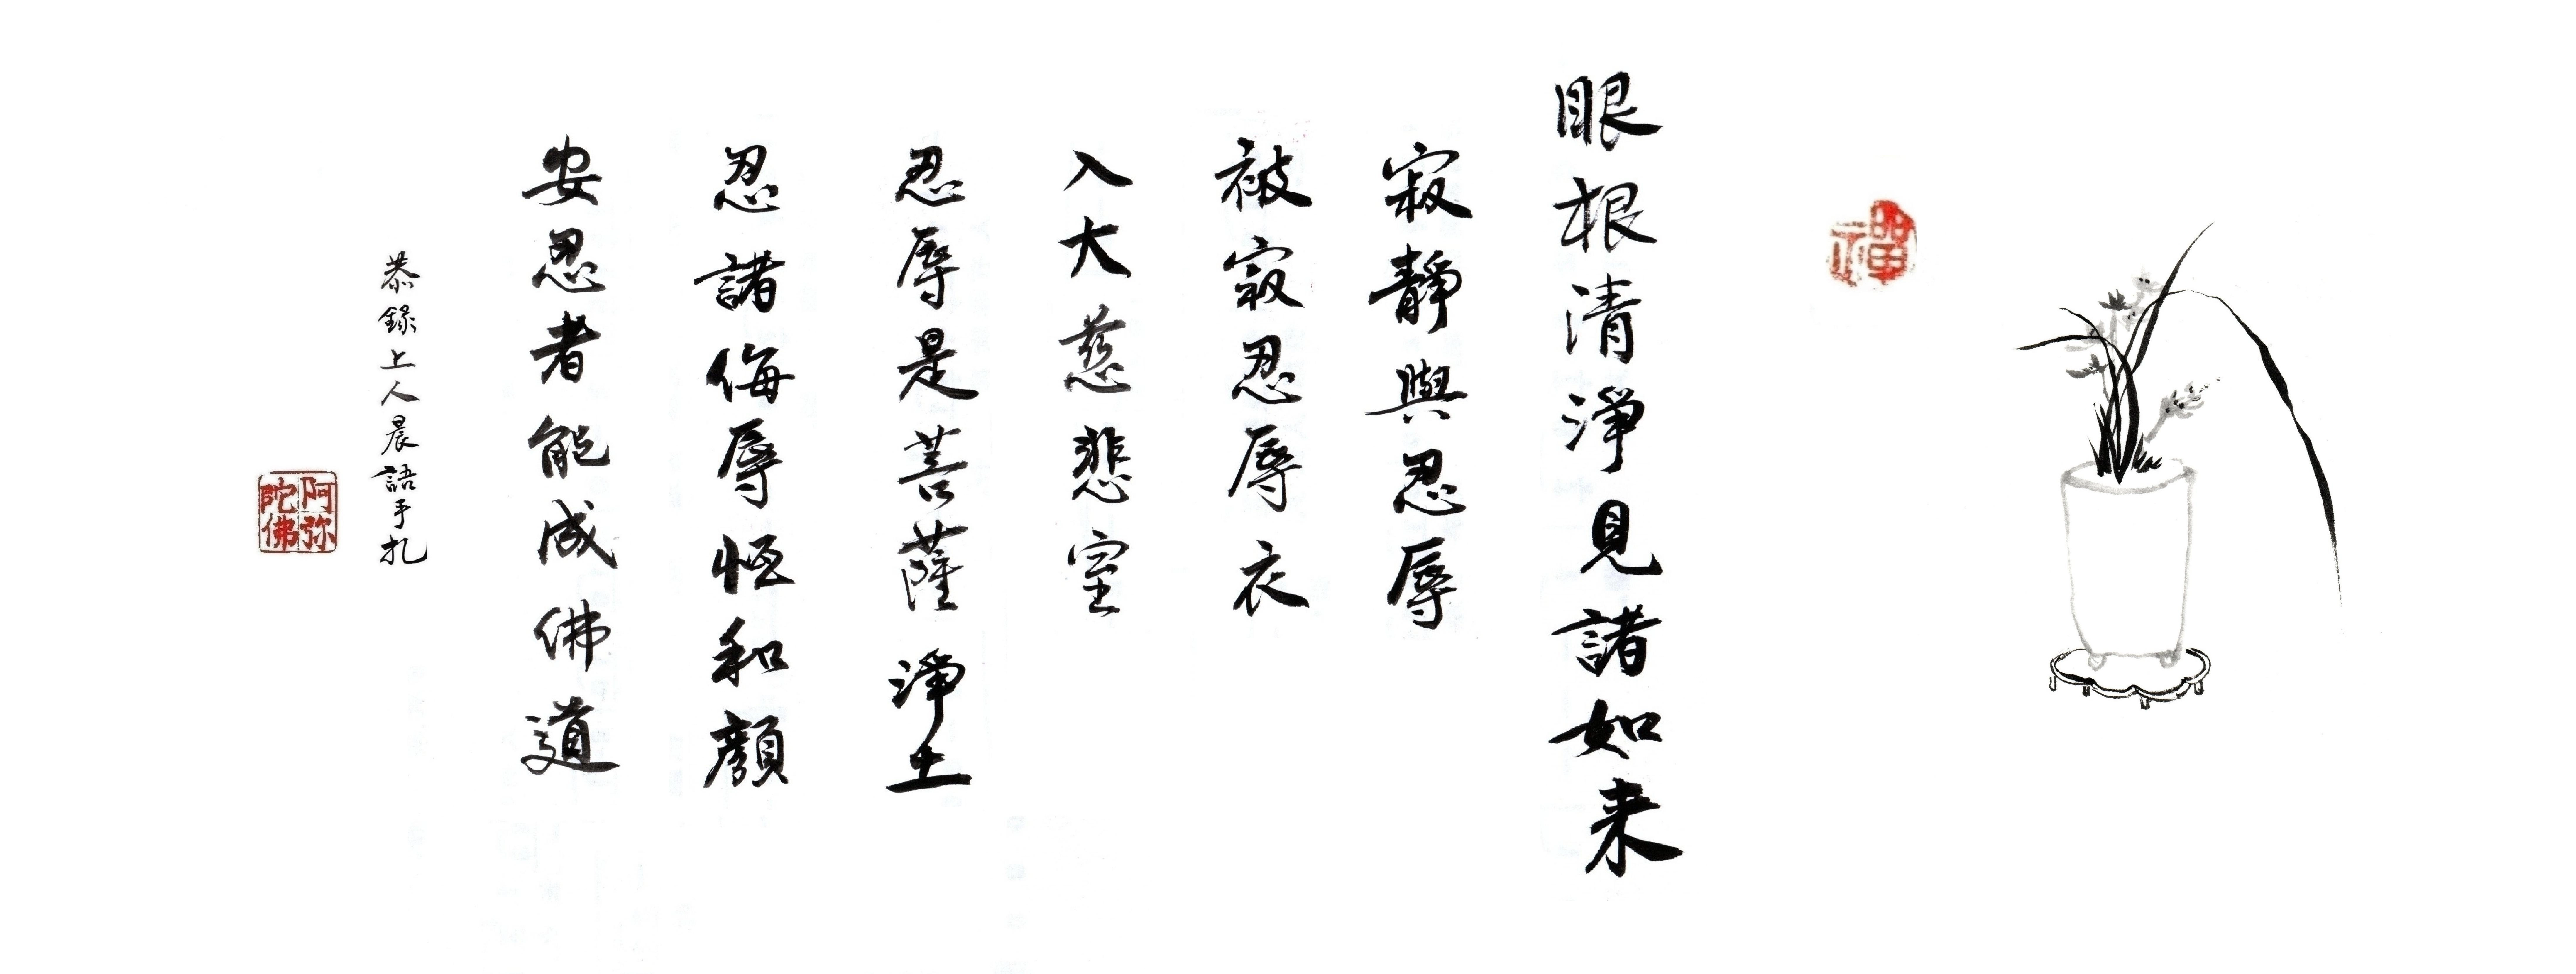 禪
眼根清淨見諸如来
寂靜與忍辱
被寂忍辱衣
入大慈悲室
忍辱是菩薩淨土
忍諸侮辱恒和顏
安忍者能成佛道
恭錄上人晨語手扎
阿弥陀佛